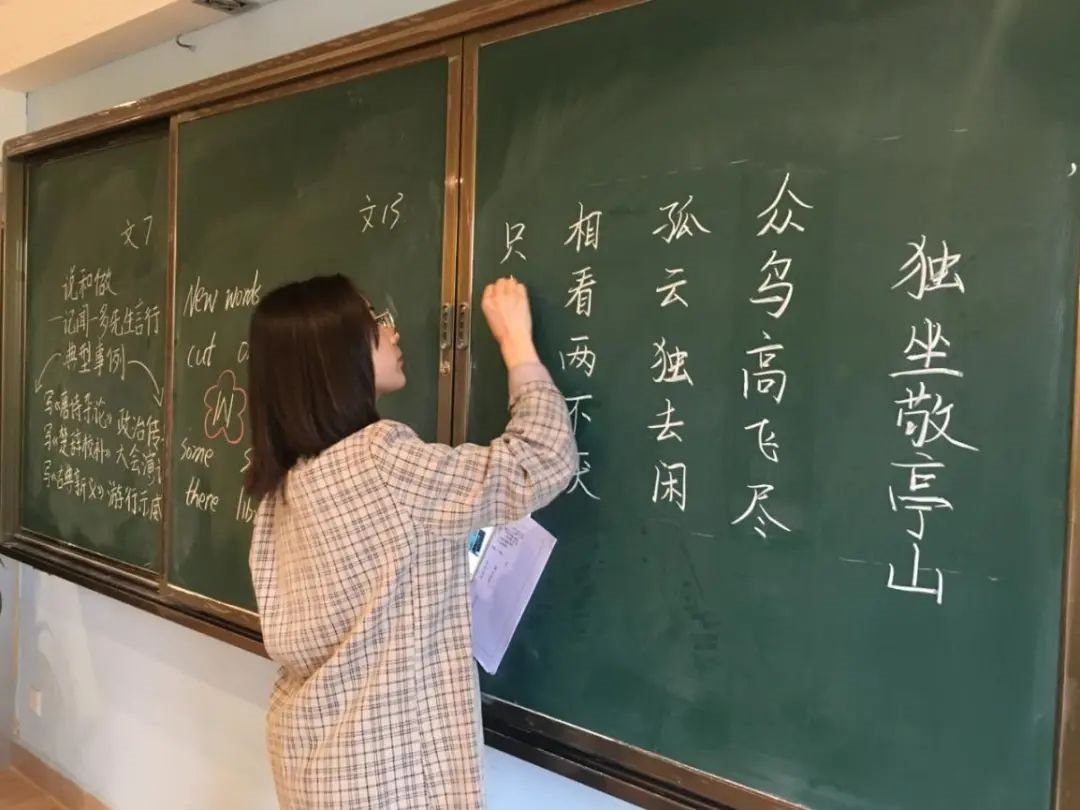 文7
说和做
—记闻一多先生言行
典型事例
写《唐诗杂论》 政治传
写《楚辞校补》 大会演
写《古典新义》 游行示威
文13
New words
cut
W
some
there
独坐敬亭山
众鸟高飞尽
孤云独去闲
相看两不厌
只